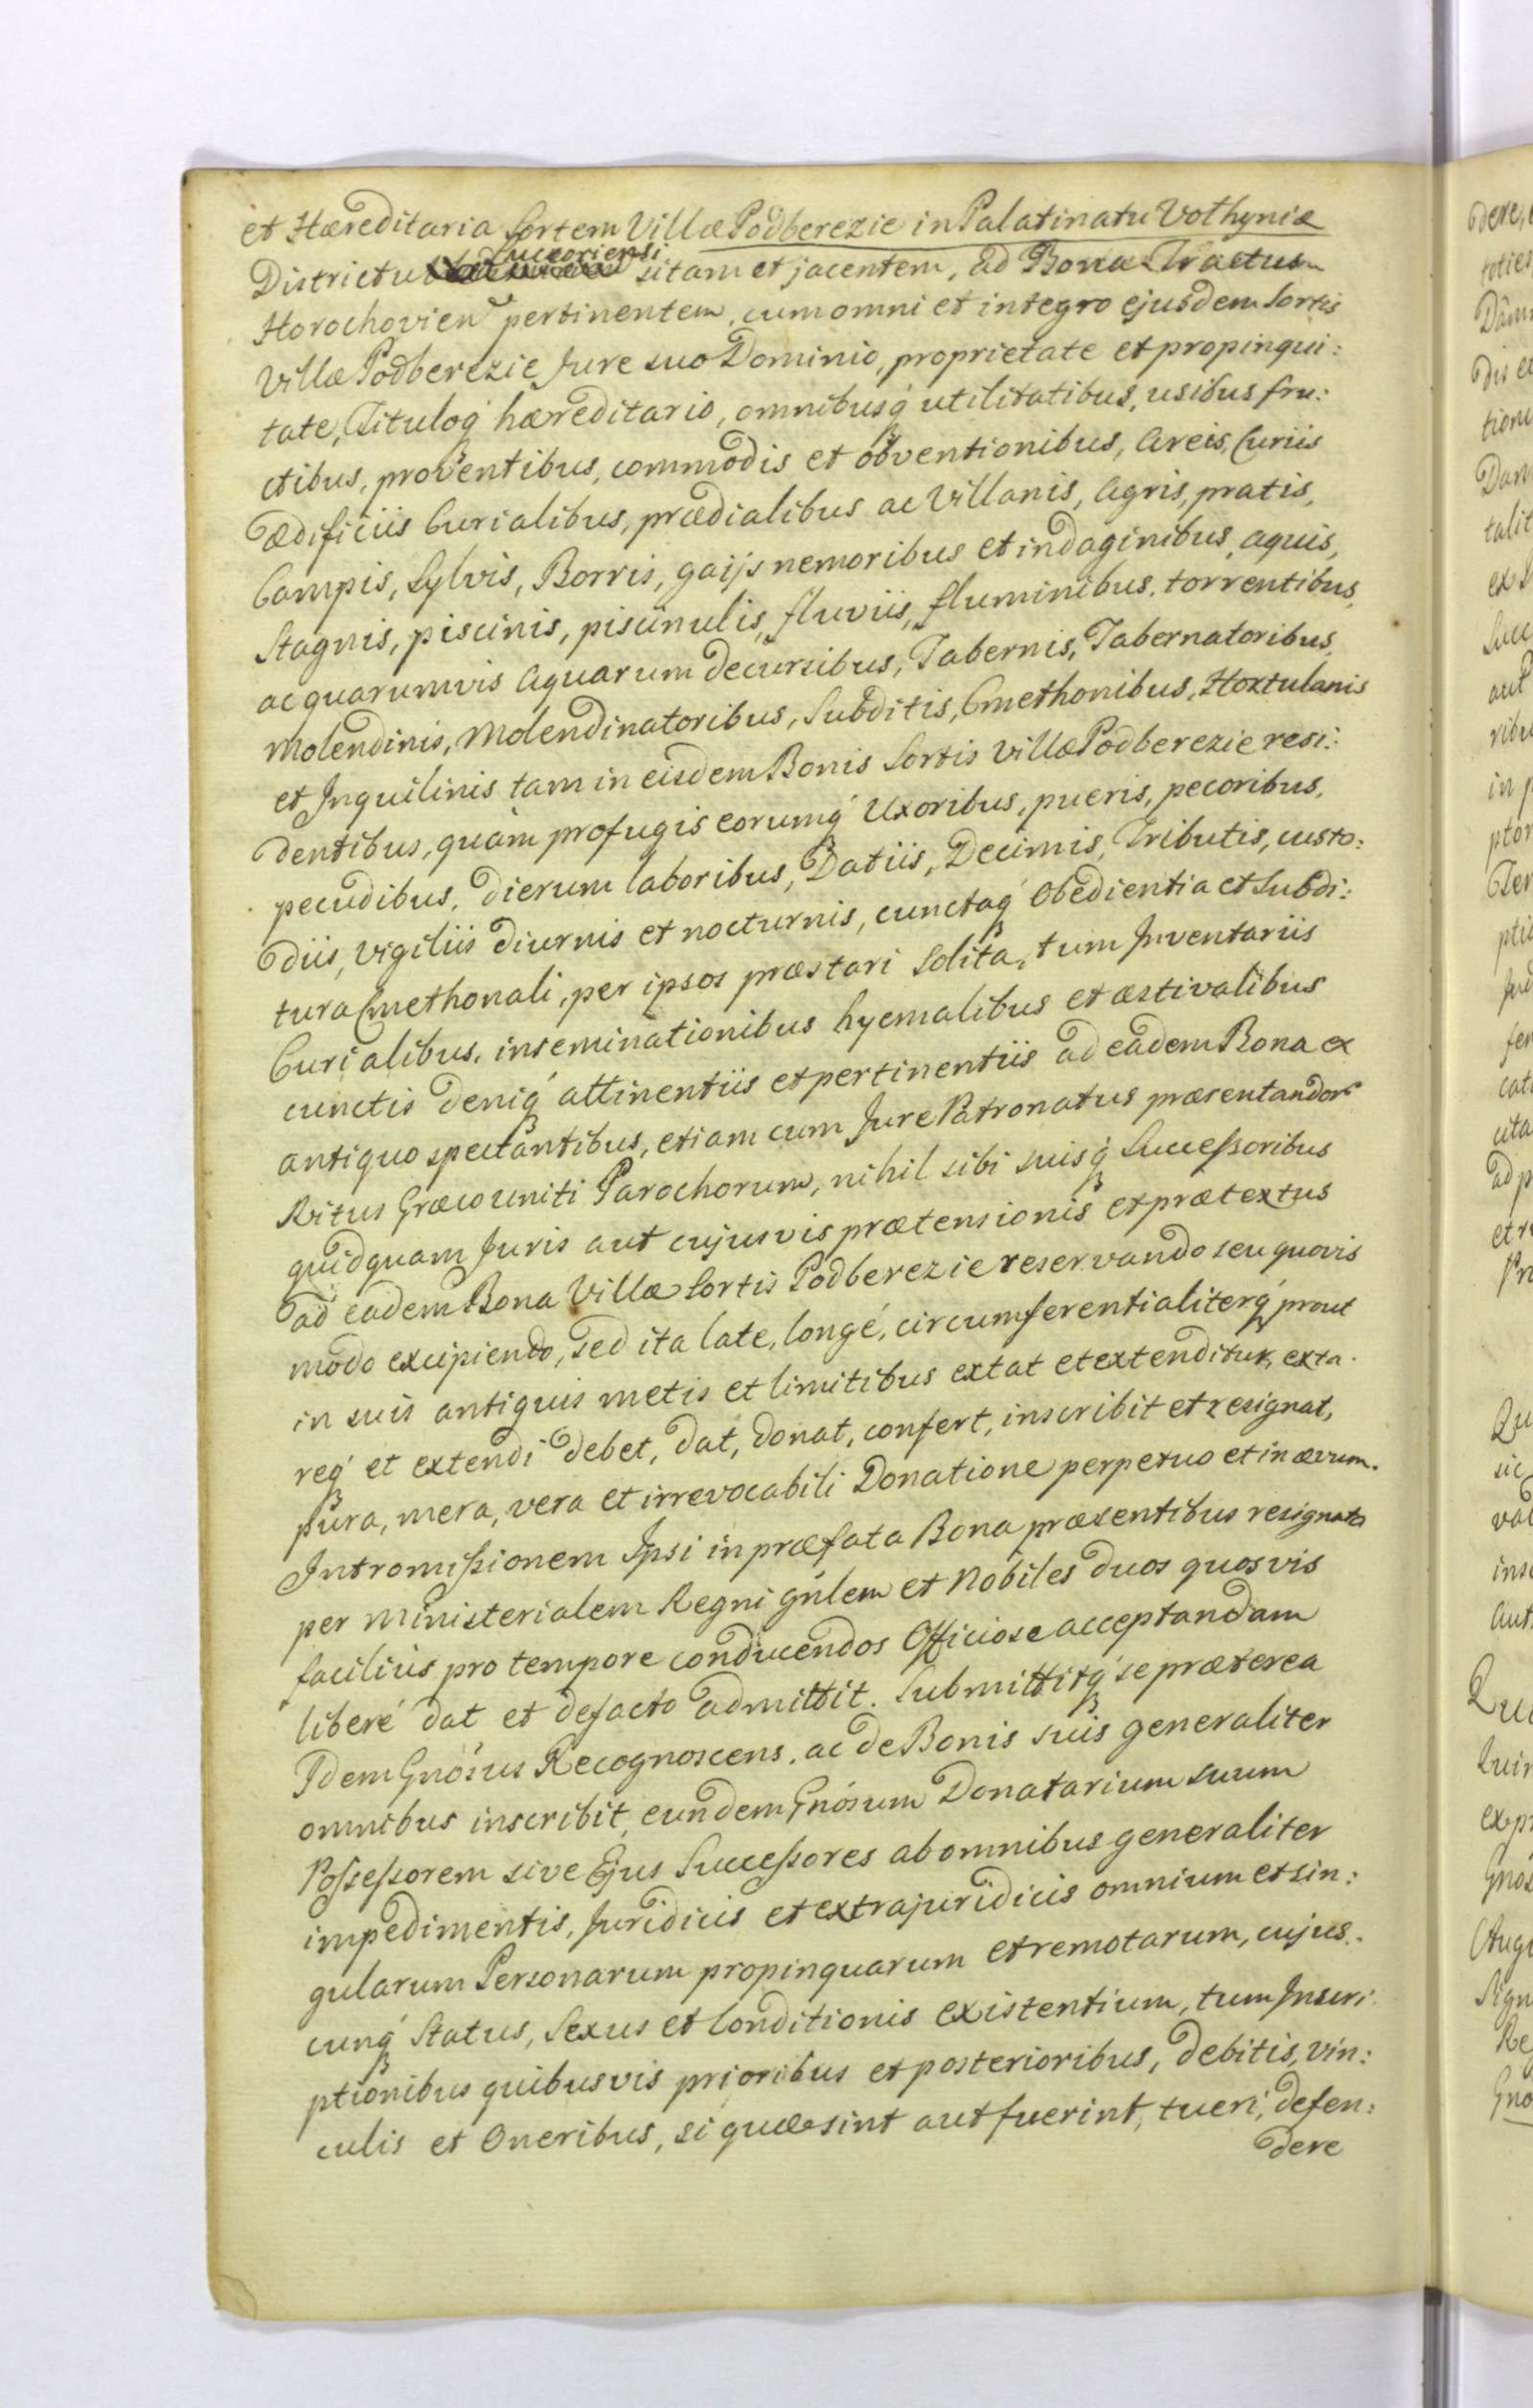 et Hæreditaria Sortem Villæ Podberezie in Palatinatu Volhyniæ
Districtu Luceoriensi sitam et jacentem, ad Bona Tractus
Horochovien pertinentem, cum omni et integro ejusdem Sortis
Villæ Podberezie Jure suo Dominio, proprietate et propinqui:
tate, Tituloq́ hæreditario, omnibusq́ utilitatibus, usibus fru:
ctibus, proventibus, commodis et obventionibus, Areis, Curiis
Ædificiis Curialibus, prædialibus ac Villanis, Agris, pratis,
Campis, Sylvis, Borris, gaijs nemoribus et indaginibus, aquis,
Stagnis, piscinis, piscinulis, fluviis, fluminibus, torrentibus,
ac quarumvis Aquarum decursibus, Tabernis, Tabernatoribus,
Molendinis, Molendinatoribus, Subditis, Cmethonibus, Hortulanis
et Inquilinis tam in eisdem Bonis Sortis Villæ Podberezie resi:
dentibus, quàm profugis eorumq́ Uxoribus, pueris, pecoribus,
pecudibus, dierum laboribus, Datiis, Decimis, Tributis, custo:
diis, vigiliis diurnis et nocturnis, cunctaq́ Obedientia et Subdi:
tura Cmethonali, per ipsos præstari solita, tum Inventariis
Curialibus, inseminationibus hyemalibus et æstivalibus
cunctis deniq́ attinentiis et pertinentiis ad eadem Bona ex
antiquo spectantibus, etiam cum Jure Patronatus præsentandor
Ritus Græco uniti Parochorum, nihil sibi suisq́ Successoribus
quidquam Juris aut cujusvis prætensionis et prætextus
ad eadem Bona Villæ Sortis Podberezie reservando seu quovis
modo excipiendo, sed ita late, longé, circumferentialiterq́ prout
in suis antiquis metis et limitibus extat et extenditur, exta:
req́ et extendi debet, dat, donat, confert, inscribit et resignat,
pura, mera, vera et irrevocabili Donatione perpetuo et in ævum.
Intromissionem Ipsi in præfata Bona præsentibus resignata
per Ministerialem Regni gńlem et Nobiles duos quosvis
facilius pro tempore conducendos Officiose acceptandam
liberé dat et defacto admittit. Submittitq́ se præterea
Idem Gnósus Recognoscens, ac de Bonis suis generaliter
omnibus inscribit, eundem Gnósum Donatarium suum
Possessorem sive Ejus Successores ab omnibus generaliter
impedimentis, Juridicis et extrajuridicis omnium et sin:
gularum Personarum propinquarum et remotarum, cujus:
cunq́ Status, Sexus et Conditionis existentium, tum Inscri:
ptionibus quibusvis prioribus et posterioribus, debitis, vin:
culis et Oneribus, si quæ sint aut fuerint, tueri, defen:
dere